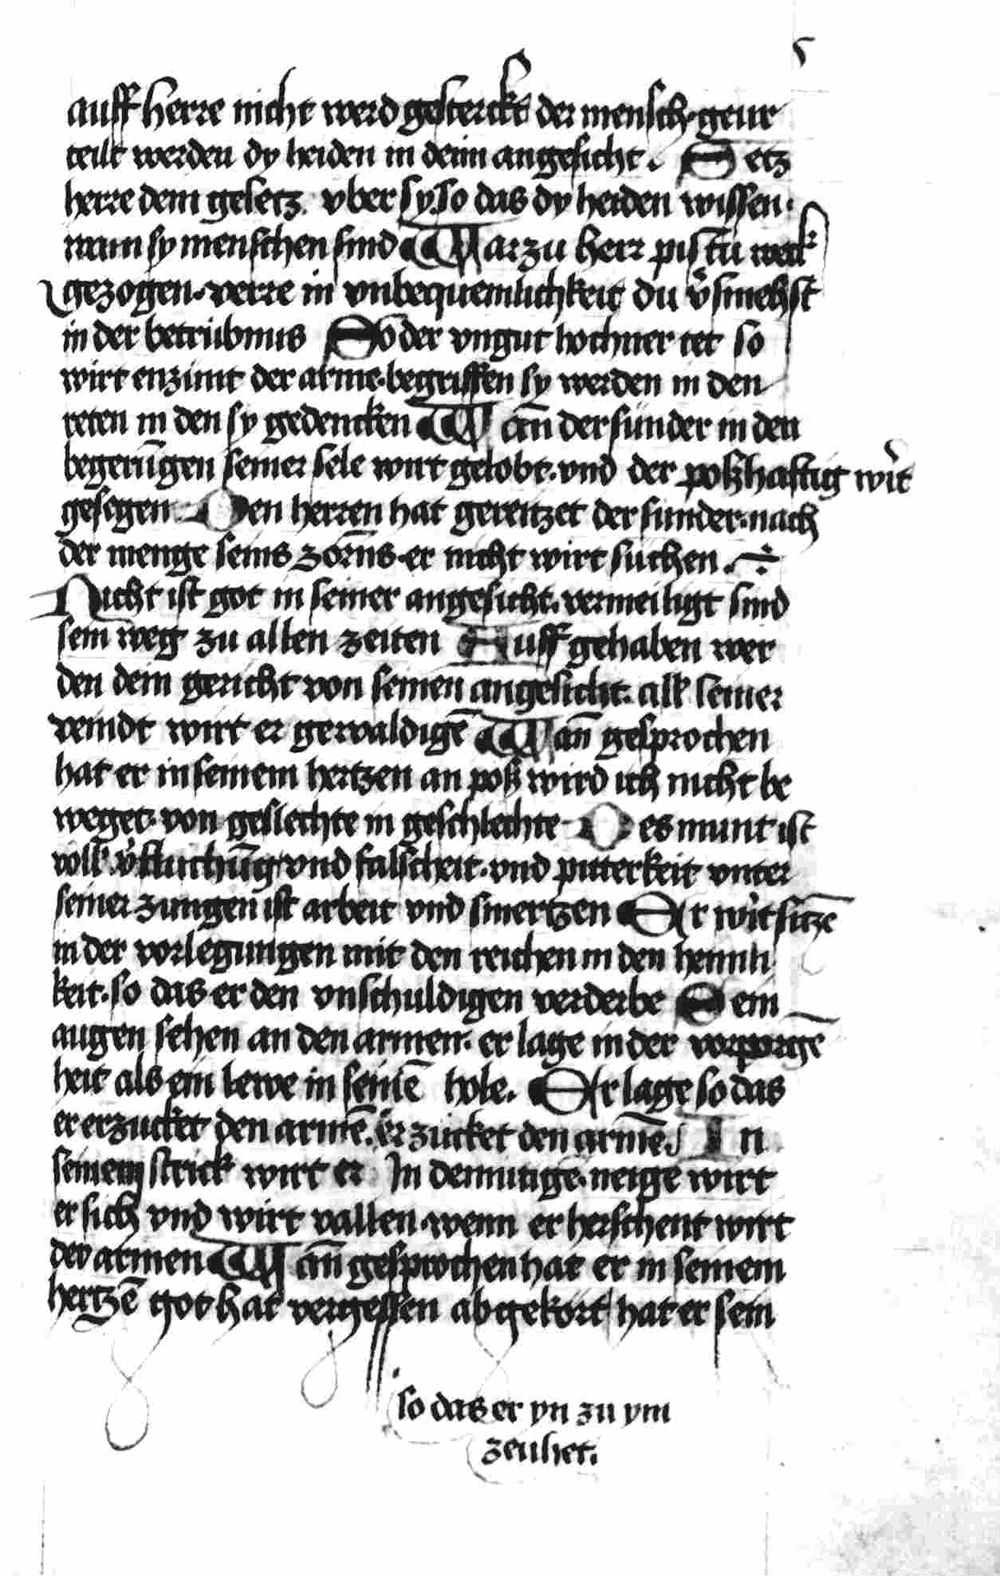 5
auff herre nicht werd gesterckt der mensch · geur
teilt werden dy heiden in deim angesicht. Setz
herre dem gesetz vber sy. so das dy heiden wissen ·
wann sy menschen sind Warzu herr pistu weck
gezogen · verre in vnbequemlichkeit du v̉smehst
in der betrübnus So der vngut hochuer tet so
wirt enzint der arme · begriffen sy werden in den
reten in den sy gedencken Wan̄ der sunder in den
begerūgen seiner sele wirt gelobt · vnd der poßhaftig wir̉t
gesegen Den herren hat gereitzet der sunder · nach
der menge seins zorns · er nicht wirt suchen.
Nicht ist got in seiner angesicht · vermeiligt sind
sein weg zu allen zeiten Auff gehaben wer
den dein gericht von seinen angesicht. all seiner
veindt wirt er gewaldigē Wan̄ gesprochen
hat er in seinem hertzen an poß wird ich nicht be
weget · von geslechte in geschlechte Des munt ist
voll v̉fluchūg vnd falscheit · vnd pitterkeit vnter
seiner zungen ist arbeit vnd smertzen Er wirt sitzē
in der vorlegungen mit den reichen in den heimli
keit · so das er den vnschuldigen verderbe Sein
augen sehen an den armen · er lage in der vorporgē
heit als ein lewe in seinē hole. Er lage so das
er erzucket den armē. er zucket den armē In
seinem strick wirt er In demutige · neige wirt
er sich vnd wirt vallen · wenn er herschent wirt
der armen Wan̄ gesprochen hat er in seinem
hertzē got hat vergessen abgekort hat er sein
so das er yn zu ym
zeuhet.